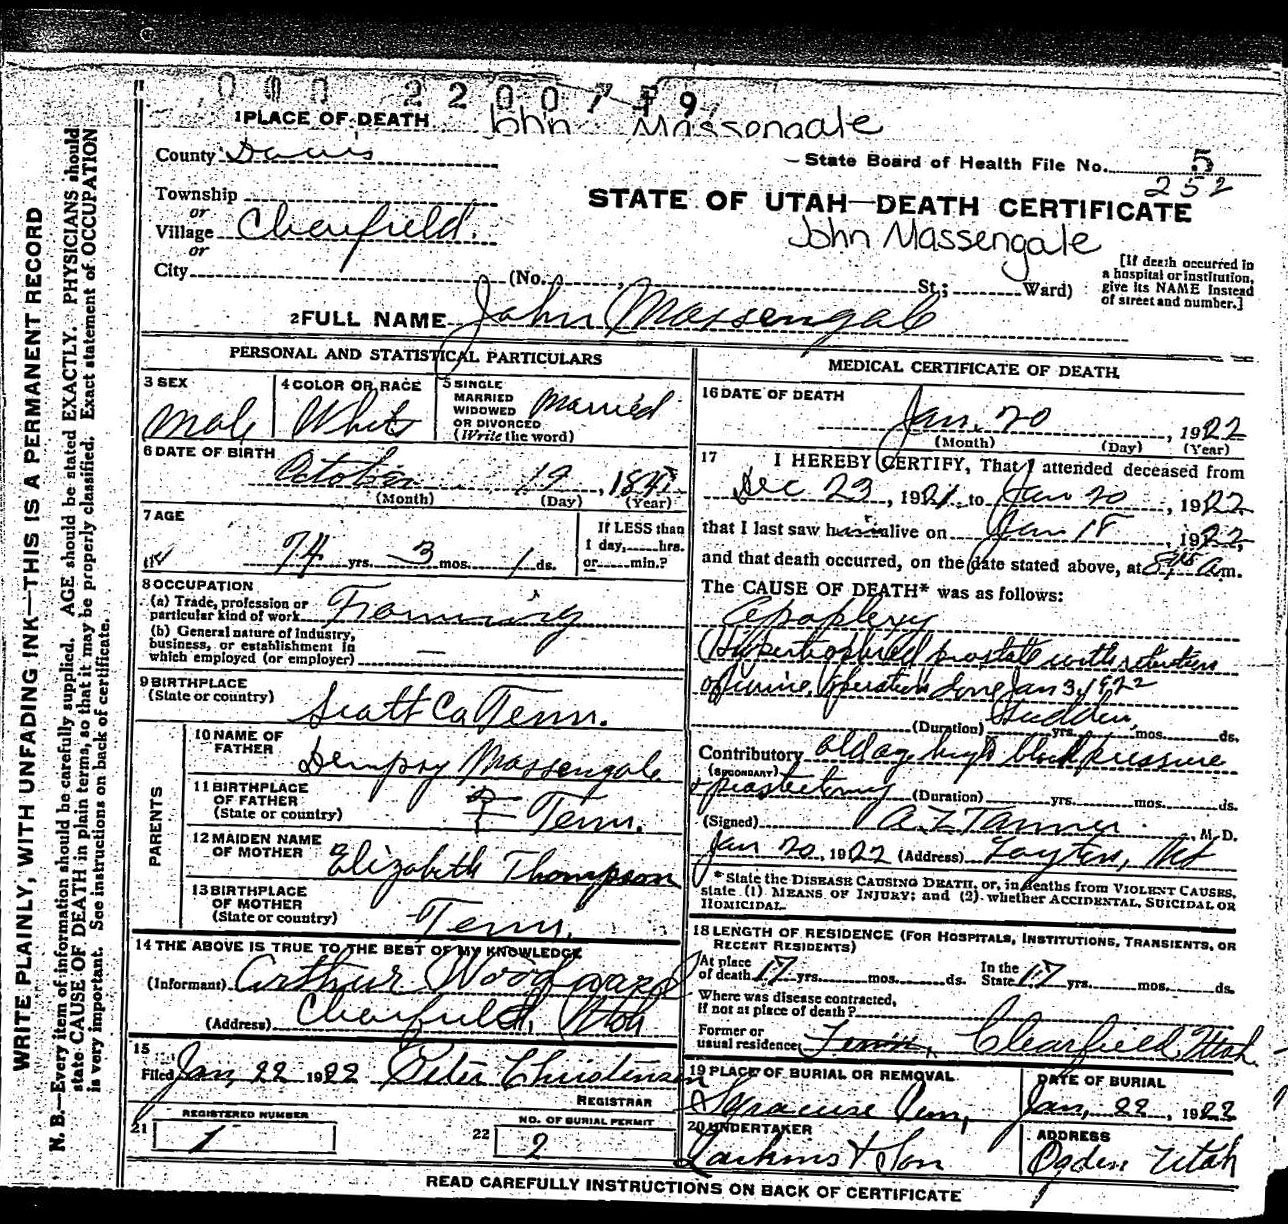 000 2200759
1 PLACE OF DEATH John Massengale
County Davis
State Board of Health File No. 5
252
Township
or
STATE OF UTAH—DEATH CERTIFICATE
Village Clearfield.
John Massengale
or
City (No. , St.; Ward)
[If death occurred in
a hospital or institution,
give its NAME instead
of street and number.]
2 FULL NAME John Massengale
PERSONAL AND STATISTICAL PARTICULARS
3 SEX
Male
4 COLOR OR RACE
White
5 SINGLE
MARRIED
WIDOWED
OR DIVORCED
(Write the word)
Married
6 DATE OF BIRTH
October 19, 1847
(Month) (Day) (Year)
7 AGE
74 yrs. 3 mos. 1 ds.
If LESS than
1 day, hrs.
or min.?
8 OCCUPATION
(a) Trade, profession or
particular kind of work Farming
(b) General nature of industry,
business, or establishment in
which employed (or employer) —
9 BIRTHPLACE
(State or country) Scott Co Tenn.
PARENTS
10 NAME OF
FATHER Dempsy Massengale
11 BIRTHPLACE
OF FATHER
(State or country) Tenn.
12 MAIDEN NAME
OF MOTHER Elizabeth Thompson
13 BIRTHPLACE
OF MOTHER
(State or country) Tenn.
14 THE ABOVE IS TRUE TO THE BEST OF MY KNOWLEDGE
(Informant) Arthur Woodward
(Address) Clearfield, Utah
15
Filed Jan, 22 1922 Peter Christensen
REGISTRAR
21 REGISTERED NUMBER
1
22 NO. OF BURIAL PERMIT
2
MEDICAL CERTIFICATE OF DEATH
16 DATE OF DEATH
Jan. 20, 1922
(Month) (Day) (Year)
17 I HEREBY CERTIFY, That I attended deceased from
Dec 23, 1921 to Jan 20, 1922
that I last saw him alive on Jan 18, 1922,
and that death occurred, on the date stated above, at 8:45 a m.
The CAUSE OF DEATH* was as follows:
Apoplexy
(Hypertrophied prostate with retention
of urine, operation done Jan 3, 1922
Sudden
(Duration) yrs. mos. ds.
Contributory old age, high blood pressure
(SECONDARY)
+ prostectomy (Duration) yrs. mos. ds.
(Signed) A. Z Tanner, M. D.
Jan 20, 1922 (Address) Layton, Ut
*State the DISEASE CAUSING DEATH, or, in deaths from VIOLENT CAUSES,
state (1) MEANS OF INJURY; and (2) whether ACCIDENTAL, SUICIDAL OR
HOMICIDAL.
18 LENGTH OF RESIDENCE (FOR HOSPITALS, INSTITUTIONS, TRANSIENTS, OR
RECENT RESIDENTS)
At place
of death 17 yrs. mos. ds. In the
State 17 yrs. mos. ds.
Where was disease contracted,
if not at place of death?
Former or
usual residence Tenn., Clearfield, Utah
19 PLACE OF BURIAL OR REMOVAL
Syracuse Cem,
DATE OF BURIAL
Jan, 22, 1922
20 UNDERTAKER
Larkins & Son
ADDRESS
Ogden Utah
READ CAREFULLY INSTRUCTIONS ON BACK OF CERTIFICATE
WRITE PLAINLY, WITH UNFADING INK—THIS IS A PERMANENT RECORD
N. B.—Every item of information should be carefully supplied. AGE should be stated EXACTLY. PHYSICIANS should
state CAUSE OF DEATH in plain terms, so that it may be properly classified. Exact statement of OCCUPATION
is very important. See instructions on back of certificate.